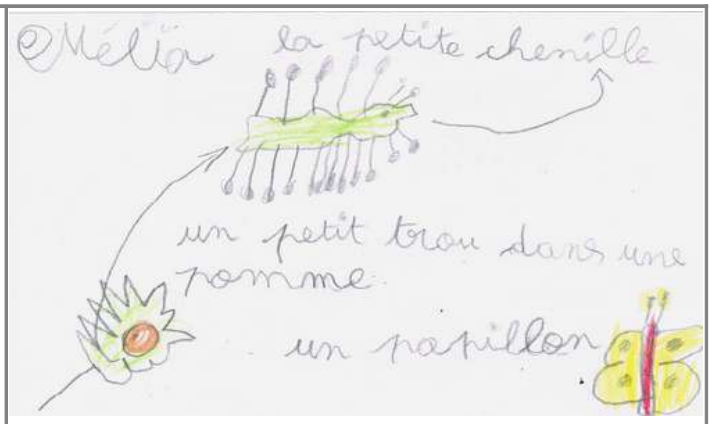 Mélïa la petite chenille
un petit trou dans une
pomme.
un papillon